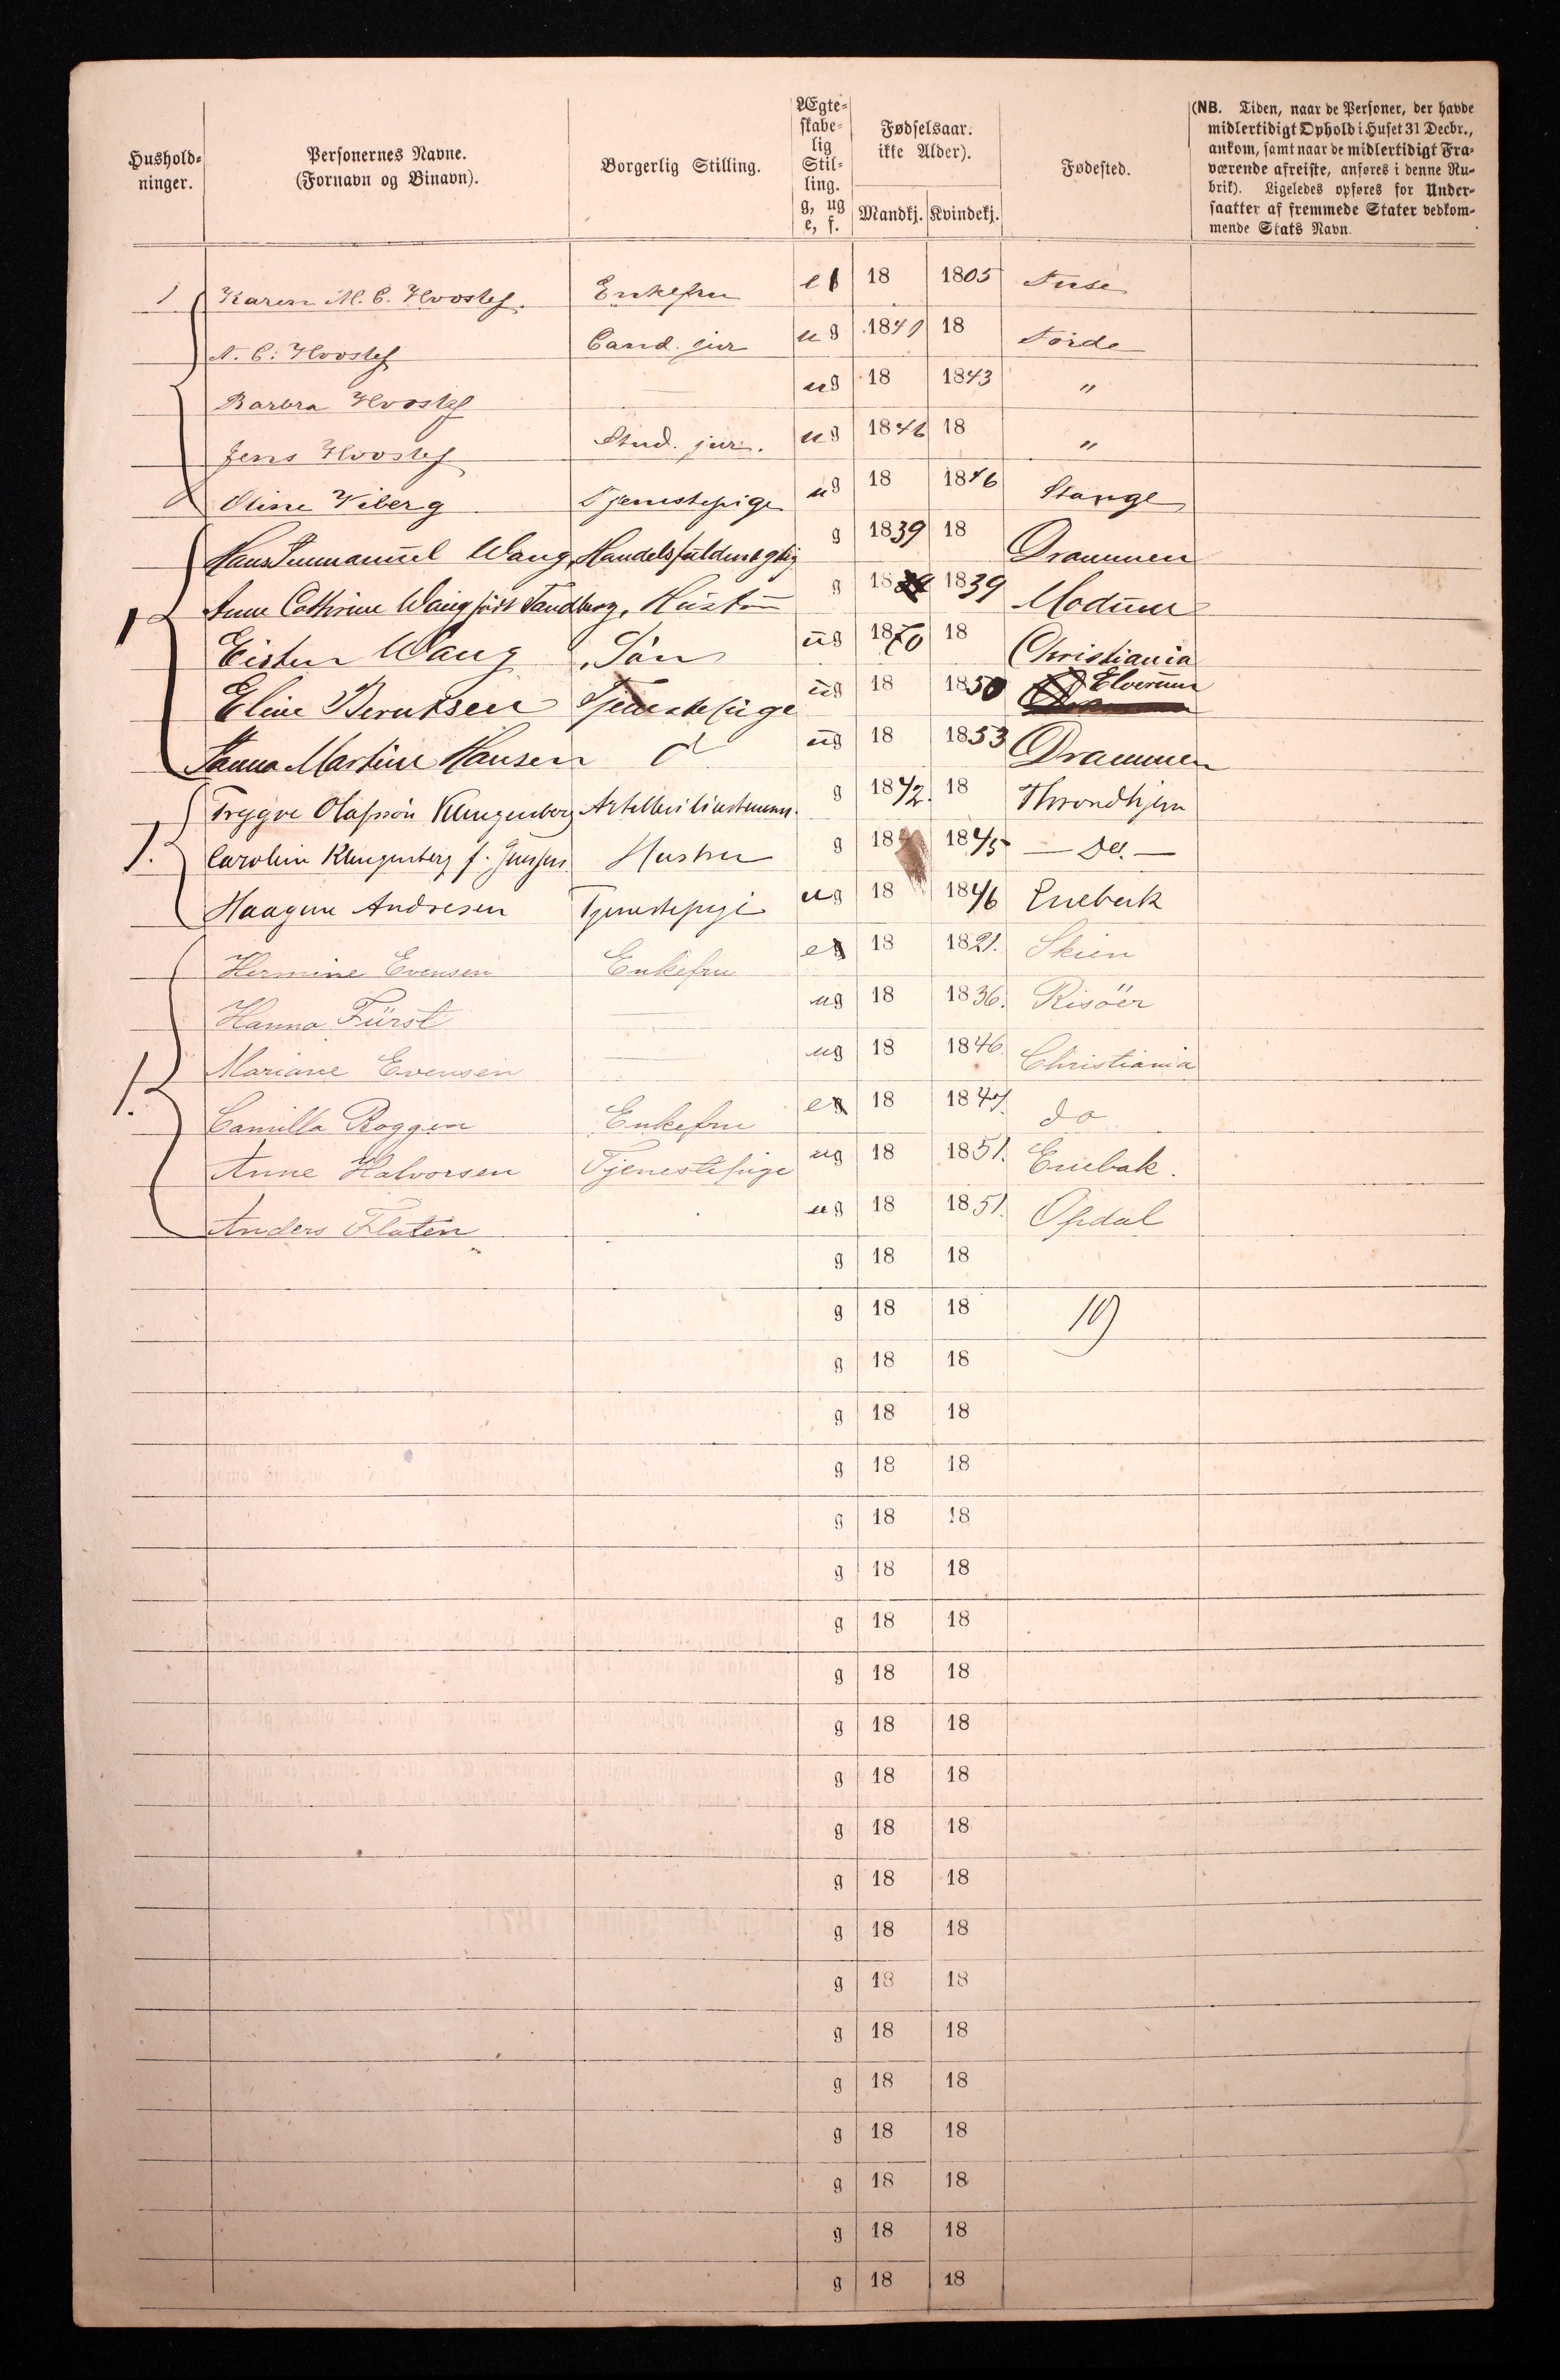 Hushold-
ninger.
Personernes Navne.
(Fornavn og Binavn).
Borgerlig Stilling.
Ægte-
skabe-
lig
Stil-
ling.
g, ug
e, f.
Fødselsaar.
ikke Alder).
Mandkj. Kvindekj.
Fødested.
(NB. Tiden, naar de Personer, der havde
midlertidigt Ophold i Huset 31 Decbr.,
ankom, samt naar de midlertidigt Fra-
værende afreiste, anføres i denne Ru-
brik). Ligeledes opføres for Under-
saatter af fremmede Stater vedkom-
mende Stats Navn.
1 Karen M. C. Hvoslef. Enkefru e 18 1805 Fuse
N. C. Hvoslef Cand. jur ug 1841 18 Förde
Barbra Hvoslef — ug 18 1843 "
Jens Hvoslef Stud. jur. ug 1846 18 "
Oline Viberg Tjenestepige ug 18 1846 Stange
Hans Immanuel Wang, Handelsfuldmægtig g 1839 18 Drammen
1 Anne Cathrine Wang født Tandberg, Hustru g 18 1839 Modum
Eistein Wang, Sön ug 1870 18 Christiania
Eline Berntsen Tjenestepige ug 18 1850 Elverum
Hanna Martine Hansen d ug 18 1853 Drammen
Tryggve Olafssøn Klingenberg Artillerilieutenant. g 1842. 18 Throndhjem
1. Caroline Klingenberg f. Hustru g 18 1845 — Do. —
Haagine Andresen Tjenestepige ug 18 1846 Enebak
Hermine Evensen Enkefru e 18 1821. Skien
Hanna Fürst — ug 18 1836. Risöer
Mariane Evensen — ug 18 1846. Christiania
1. Camilla Roggen Enkefru e 18 18 do
Anne Halvorsen Tjenestepige ug 18 1851. Enebak.
Anders Flaten ug 18 1851. Opdal
g 18 18
g 18 18 19
g 18 18
g 18 18
g 18 18
g 18 18
g 18 18
g 18 18
g 18 18
g 18 18
g 18 18
g 18 18
g 18 18
g 18 18
g 18 18
g 18 18
g 18 18
g 18 18
g 18 18
g 18 18
g 18 18